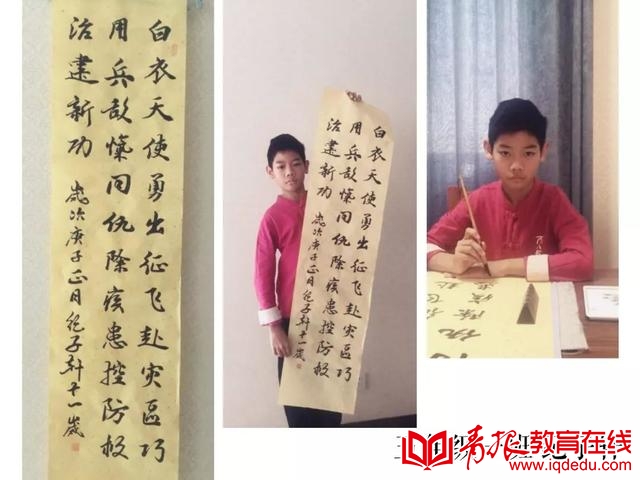 白衣天使勇出征飞赴灾区巧
用兵敌忾同仇除疾患控防救
治建新功 岁次庚子正月纪子轩十一岁
白衣天使勇出征飞赴灾区巧
用兵敌忾同仇除疾患控防救
治建新功 岁次庚子正月纪子轩十一岁
青报教育在线
www.iqdedu.com